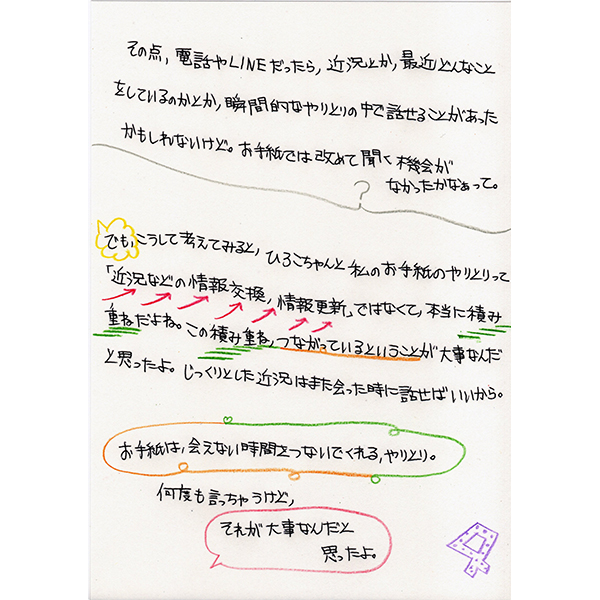 その点，電話やLINEだったら，近況とか，最近どんなこと
をしているのかとか，瞬間的なやりとりの中で話せることがあった
かもしれないけど。お手紙では改めて聞く機会が
なかったかなぁって。
?
でも，こうして考えてみると，ひろこちゃんと私のお手紙のやりとりって
「近況などの情報交換，情報更新」ではなくて，本当に積み
重ねだよね。この積み重ね，つながっているということが大事なんだ
と思ったよ。じっくりとした近況はまた会った時に話せばいいから。
お手紙は，会えない時間をつないでくれる，やりとり。
何度も言っちゃうけど，
それが大事なんだと
思ったよ。
4